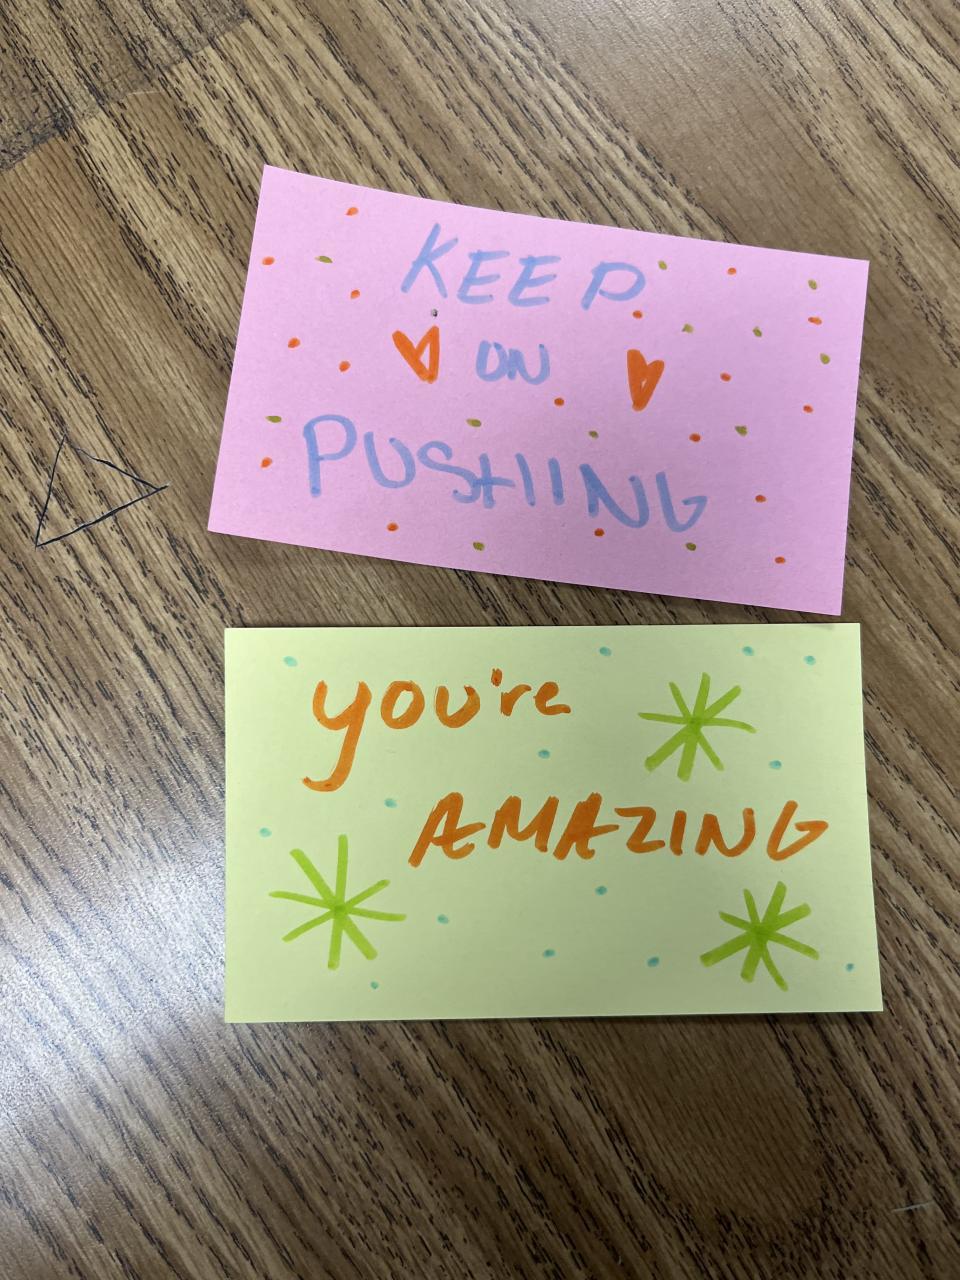 KEEP
ON
PUSHING
you're
AMAZING